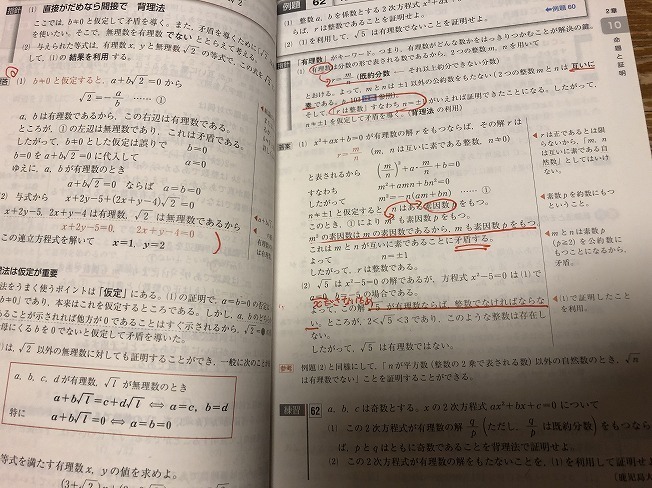 (1) 直接がだめなら間接で 背理法
ここでは，b≠0と仮定して矛盾を導く。また，矛盾を導くために
を使いたい。そこで，無理数を有理数でないととらえて
(2) 与えられた等式は，有理数x，yと無理数√2の等式で，この式を
て，(1)の結果を利用する。
(1) b≠0と仮定すると，a+b√2=0から
√2=−a/b ……①
a，bは有理数であるから，この右辺は有理数である。
ところが，①の左辺は無理数であり，これは矛盾である。
したがって，b≠0とした仮定は誤りで b=0
b=0をa+b√2=0に代入して a=0
ゆえに，a，bが有理数のとき
a+b√2=0 ならば a=b=0
(2) 与式から x+2y−5+(2x+y−4)√2=0
x+2y−5，2x+y−4は有理数，√2は無理数であるから
x+2y−5=0，2x+y−4=0
この連立方程式を解いて x=1，y=2
法は仮定が重要
法をうまく使うポイントは「仮定」にある。(1)の証明で，a=b=0の否定は
b≠0」であり，本来はこれを仮定するところである。しかし，a，bのどちら
ることが示されれば他方が0であることはすぐ示されるから，
母にくるbを0でないと仮定して矛盾を導いた。
は，√2以外の無理数に対しても証明することができ，一般に次のこと
a，b，c，dが有理数，√lが無理数のとき
a+b√l=c+d√l ⇔ a=c，b=d
特に a+b√l=0 ⇔ a=b=0
等式を満たす有理数x，yの値を求めよ。
例題 62
(1) 整数a，bを係数とする2次方程式x²+ax+
らば，rは整数であることを証明せよ。
(2) (1)を利用して，√5は有理数でないことを証明せよ。
←例題 60
2章
10
命題と証明
指針
「有理数」がキーワード。つまり，有理数がどんな数かをはっきりつかむことが解決の鍵。
(1) 有理数は分数の形で表される数であるから，2つの整数m，nを用いて
r=m/n (既約分数 ← それ以上約分できない分数)
とおける。よって，mとnは±1以外の公約数をもたない(2つの整数mとnは互いに
素である。
そして，「rは整数」すなわちn=±1がいえれば証明できたことになる。したがって，
n≠±1を仮定して矛盾を導く。(背理法の利用)
答案
(1) x²+ax+b=0が有理数の解rをもつならば，その解rは
r=m/n (m，nは互いに素である整数，n≠0)
と表されるから (m/n)²+a・m/n+b=0
すなわち m²+amn+bn²=0
よって m²=−n(am+bn) ……①
n≠±1と仮定するとnはある素因数pをもつ。
このとき，①によりm²も素因数pをもつ。
m²の素因数はmの素因数であるから，mも素因数pをもつ。
これはmとnが互いに素であることに矛盾する。
よって n=±1
したがって，rは整数である。
(2) √5はx²−5=0の解であるが，方程式x²−5=0は(1)で
の場合である。
よって，この解√5が有理数ならば，整数でなければならな
い。ところが，2<√5<3であり，このような整数は存在し
ない。
したがって，√5は有理数ではない。
◀rは正であるとは限
らないから，「m，n
は互いに素である自
然数」としてはいけ
ない。
◀素数pを約数にもつ
ということ。
◀mとnは素数p
(p≧2)を公約数に
もつことになるから，
矛盾。
◀(1)で証明したこと
を利用。
参考 例題(2)と同様にして，「nが平方数(整数の2乗で表される数)以外の自然数のとき，√n
は有理数でない」ことを証明することができる。
練習 62 a，b，cは奇数とする。xの2次方程式ax²+bx+c=0について
(1) この2次方程式が有理数の解q/p(ただし，q/pは既約分数)をもつなら
ば，pとqはともに奇数であることを背理法で証明せよ。
(2) この2次方程式が有理数の解をもたないことを，(1)を利用して証明せよ